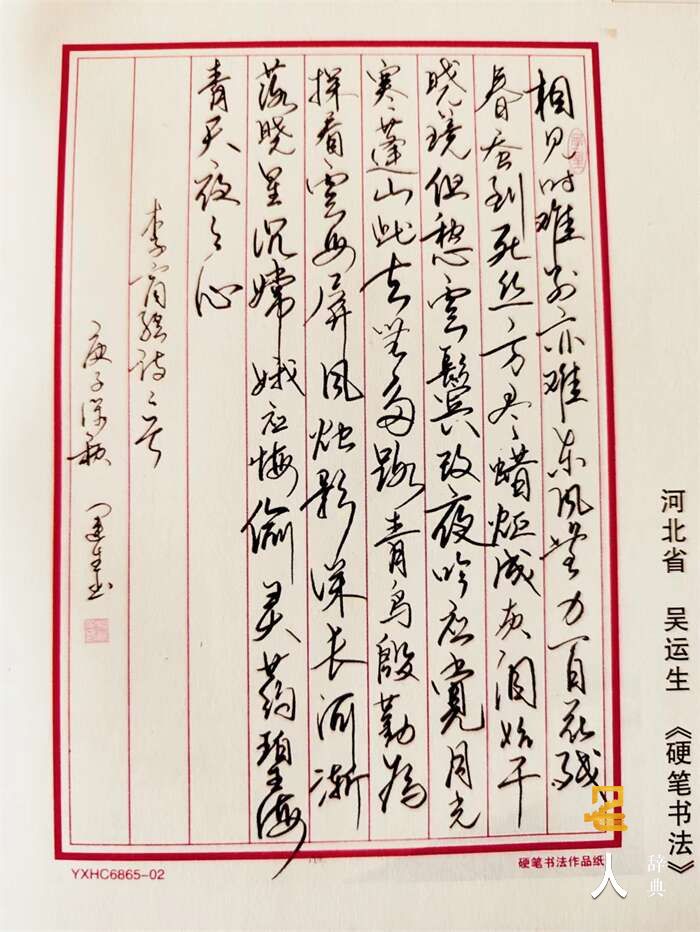 相见时难别亦难东风無力百花残
春蚕到死丝方尽蜡炬成灰泪始干
晓镜但愁雲鬓改夜吟应觉月光
寒蓬山此去無多路青鸟殷勤为
探看雲母屏风烛影深长河渐
落晓星沉嫦娥应悔偷灵药碧海
青天夜々心
李商隐诗二首
庚子深秋 运生书
河北省 吴运生 《硬笔书法》
YXHC6865-02
硬笔书法作品纸
名人辞典